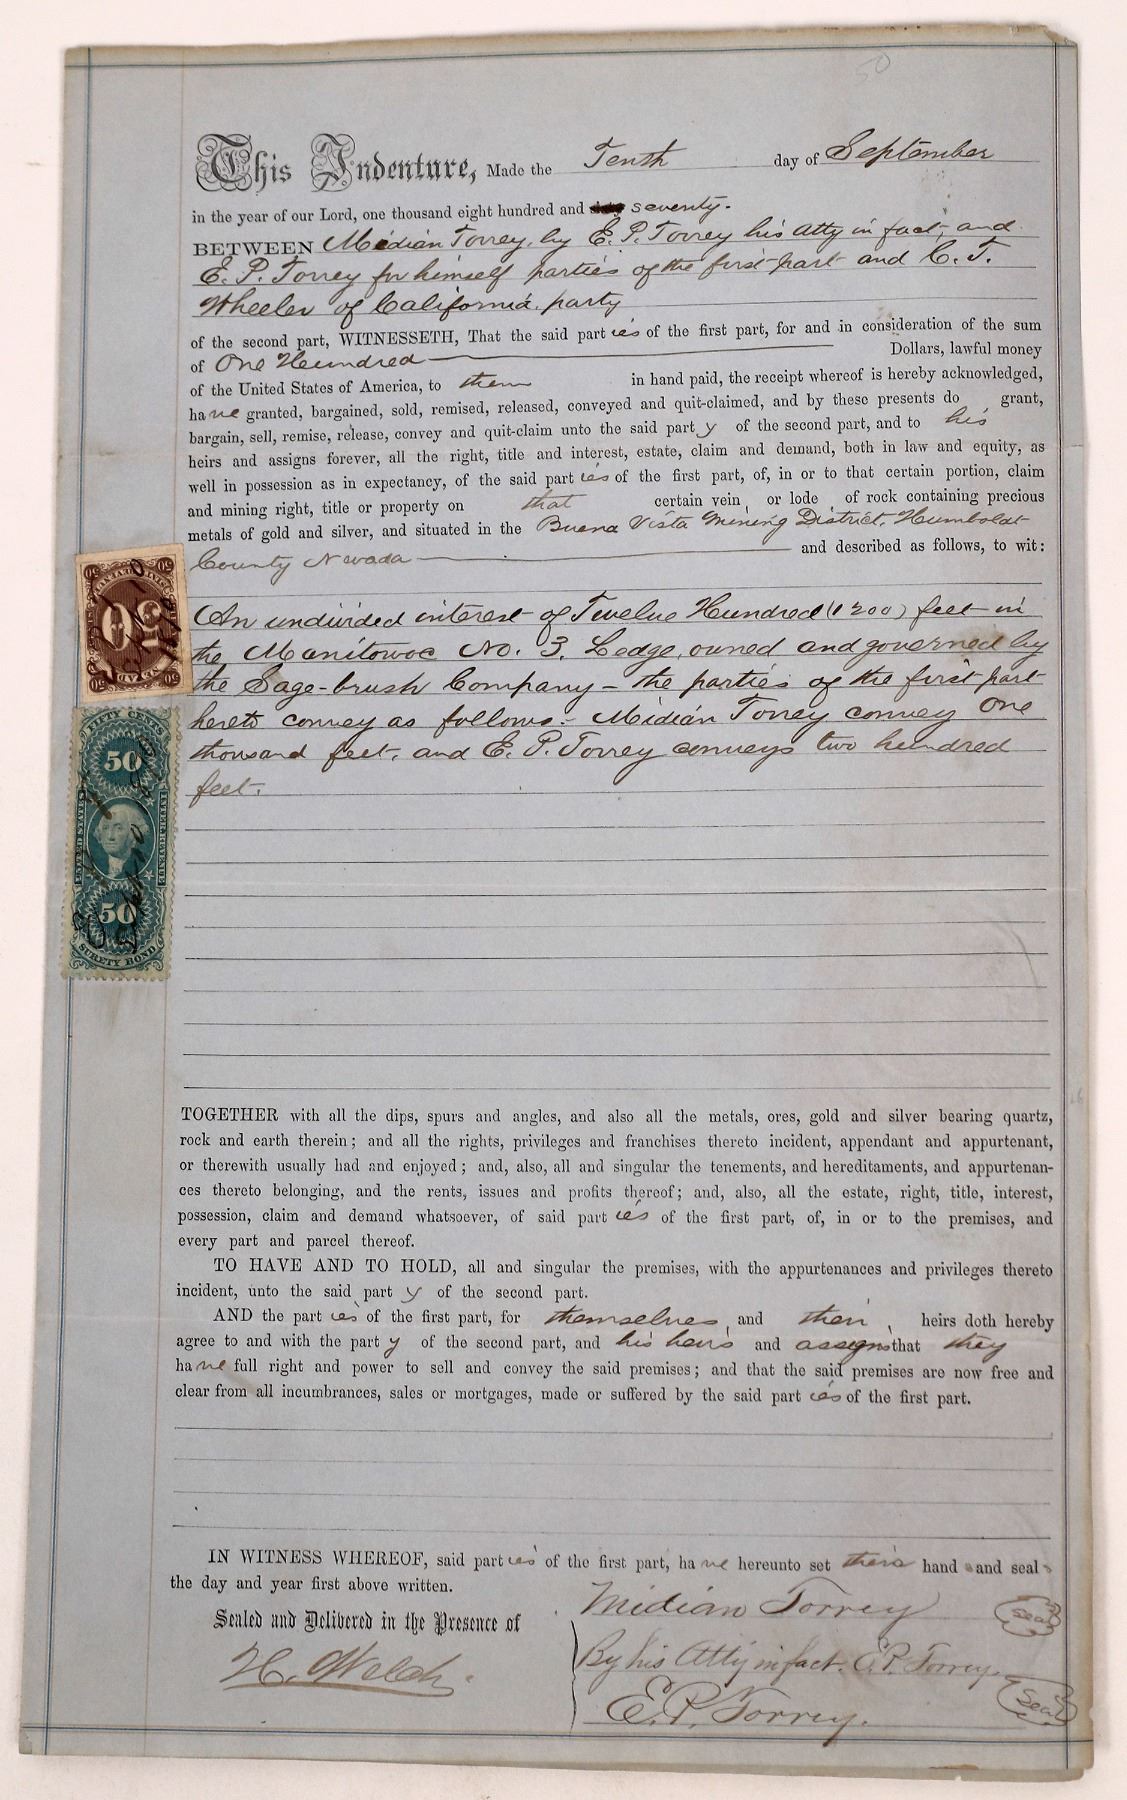 50
This Indenture, Made the Tenth day of September
in the year of our Lord, one thousand eight hundred and seventy.
BETWEEN Midian Torrey, by E. P. Torrey his atty in fact, and
E. P. Torrey for himself parties of the first part and C. T.
Wheeler of California, party
of the second part, WITNESSETH, That the said parties of the first part, for and in consideration of the sum
of One Hundred Dollars, lawful money
of the United States of America, to them in hand paid, the receipt whereof is hereby acknowledged,
have granted, bargained, sold, remised, released, conveyed and quit-claimed, and by these presents do grant,
bargain, sell, remise, release, convey and quit-claim unto the said party of the second part, and to his
heirs and assigns forever, all the right, title and interest, estate, claim and demand, both in law and equity, as
well in possession as in expectancy, of the said parties of the first part, of, in or to that certain portion, claim
and mining right, title or property on that certain vein, or lode of rock containing precious
metals of gold and silver, and situated in the Buena Vista Mining District, Humboldt
County Nevada and described as follows, to wit:
An undivided interest of Twelve Hundred (1200) feet in
the Manitowoc No. 3. Ledge, owned and governed by
the Sage-brush Company - the parties of the first part
hereto convey as follows:- Midian Torrey convey One
thousand feet, and E. P. Torrey conveys two hundred
feet.
50
FIFTY CENTS
50
UNITED STATES
INTER. REVENUE
50
SURETY BOND
TOGETHER with all the dips, spurs and angles, and also all the metals, ores, gold and silver bearing quartz,
rock and earth therein; and all the rights, privileges and franchises thereto incident, appendant and appurtenant,
or therewith usually had and enjoyed; and, also, all and singular the tenements, and hereditaments, and appurtenan-
ces thereto belonging, and the rents, issues and profits thereof; and, also, all the estate, right, title, interest,
possession, claim and demand whatsoever, of said parties of the first part, of, in or to the premises, and
every part and parcel thereof.
TO HAVE AND TO HOLD, all and singular the premises, with the appurtenances and privileges thereto
incident, unto the said party of the second part.
AND the parties of the first part, for themselves, and their, heirs doth hereby
agree to and with the party of the second part, and his heirs and assigns that they
have full right and power to sell and convey the said premises; and that the said premises are now free and
clear from all incumbrances, sales or mortgages, made or suffered by the said parties of the first part.
IN WITNESS WHEREOF, said parties of the first part, have hereunto set their hands and seals
the day and year first above written.
Sealed and Delivered in the Presence of
Midian Torrey
seal
H. Welch.
By his Atty in fact. E. P. Torrey.
E. P. Torrey.
seal